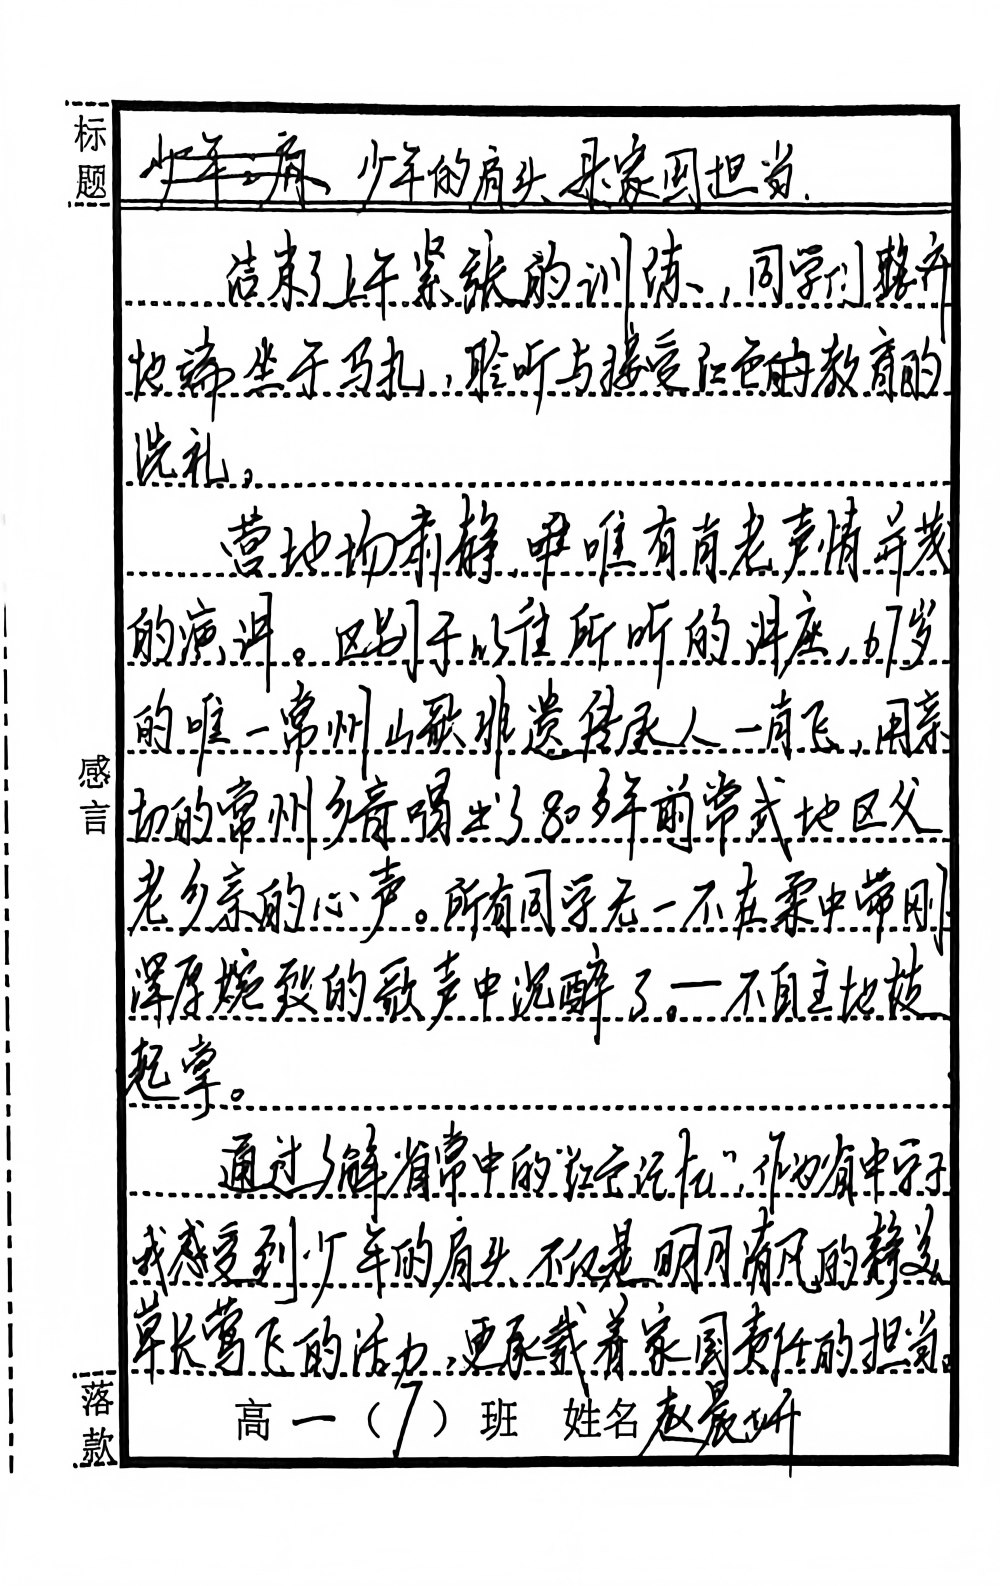 标题
少年的肩头是家国担当.
结束了上午紧张的训练,同学们整齐
地端坐于马扎,聆听与接受红色的教育的
洗礼。
营地切肃静,唯有肖老声情并茂
的演讲。区别于以往所听的讲座,67岁
的唯一常州山歌非遗传承人一肖飞,用亲
切的常州乡音唱出了80多年前常武地区父
老乡亲的心声。所有同学无一不在柔中带刚
深厚婉致的歌声中沉醉了。一不自主地鼓
起掌。
通过了解省常中的"红色记忆",作为省中学子
我感受到少年的肩头不仅是明月清风的静美
草长莺飞的活力,更承载着家国责任的担当。
感言
落款
高一(7)班 姓名赵晨妍